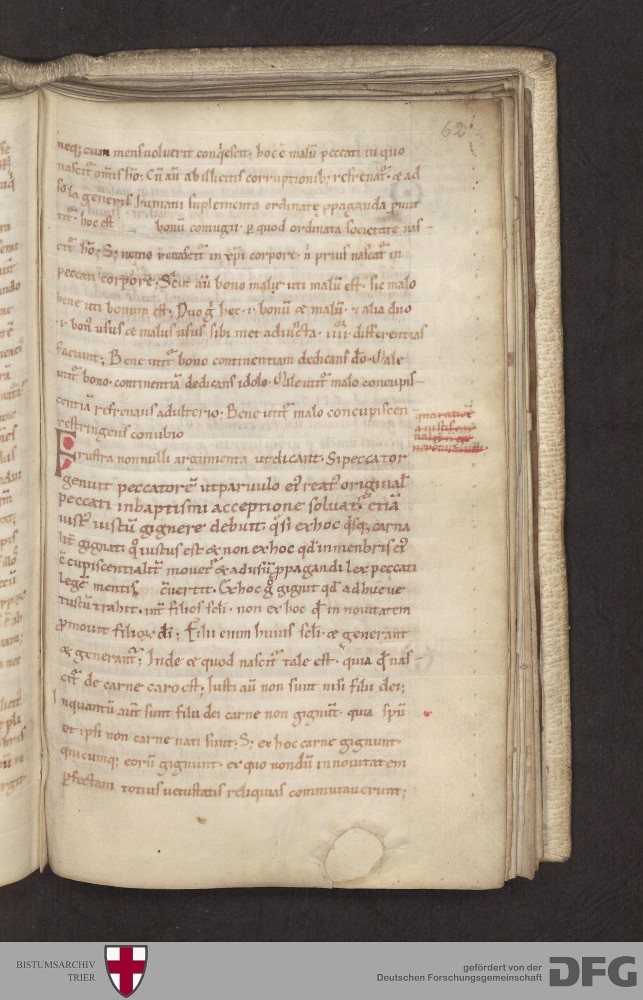 62
neq; cum mens voluerit conqͥescit. hoc ē malū peccati in quo
nascit᷑ om̄is hō; Cū aū ab illicitis corruptionib; refrenat᷑. & ad
sola generis humani suplementa ordinatę ꝓpaganda ꝑmit
tit᷑. hoc est bonū coniugii. ꝑ quod ordinata societate nas-
cit᷑ hō; S; nemo renascit᷑ in xp̄i corpore. n̄ prius nascat᷑ in
peccati corpore; Sicut aū bono male uti malū est. sic malo
bene uti bonum est; Duo g̊ hęc .i. bonū & malū. & alia duo
.i. bon᷑ usus & malus usus sibi met adiūcta .iiii. differentias
faciunt; Bene utit᷑ bono continentiam dedicans dō. Male
utit᷑ bono. continentiā dedicans idolo. Male utit᷑ malo concupis-
centiā refrenans adulterio. Bene utit᷑ malo concupiscen-
restringens conubio
Frustra nonnulli argumenta ut dicant. Si peccator
genuit peccatorē ut paruulo ei᷑ reat᷑ originał
peccati in baptismi acceptione soluat᷑. etiā
iust᷑ iustū gignere debuit. qͣsi ex hoc qͥsq; carna
lit᷑ gignat. qͦ iustus est & non ex hoc qd̄ in menbris ei᷑
c̄cupiscentialit᷑ mouet᷑ & ad usū ꝓpagandi lex peccati
legē mentis c̄uertit. Ex hoc g̊ gignit qd̄ adhuc ue
tustū trahit. int᷑ filios sc̄li. non ex hoc qd̄ in nouitatem
ꝓmouit filios dī; Filii enim huius sc̄li. & generant
& generant᷑; Inde & quod nascit᷑ tale est. quia qd̄ nas-
cit᷑ de carne caro est; Iusti aū non sunt nisi filii dei;
Inquantū aūt sunt filii dei carne non gignūt. quia spū
et ipsi non carne nati sunt; S; ex hoc carne gignunt.
quicumq; eorū gignunt. ex quo nondū in nouitatem
ꝑfectam totius uetustatis reliquias commutauerunt;
BISTUMSARCHIV
TRIER
gefördert von der
Deutschen Forschungsgemeinschaft
DFG